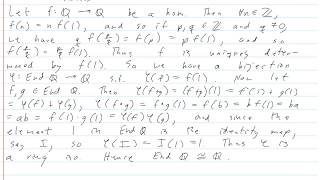 Let f: ℚ → ℚ be a hom. Then ∀n∈ℤ,
f(n) = n f(1), and so if p, q ∈ ℤ and q≠0,
we have q f(p/q) = f(p) = p f(1), and so
f(p/q) = p/q f(1). Thus f is uniquely deter-
mined by f(1). So we have a bijection
φ: End ℚ → ℚ s.t. φ(f) = f(1). Now let
f, g ∈ End ℚ. Then φ(f+g) = (f+g)(1) = f(1) + g(1)
= φ(f) + φ(g), φ(f∘g) = f∘g(1) = f(b) = b f(1) = ba
= ab = f(1)·g(1) = φ(f)φ(g), and since the
element 1 in End ℚ is the identity map,
say I, so φ(I) = I(1) = 1. Thus φ is
a ring iso. Hence End ℚ ≅ ℚ.